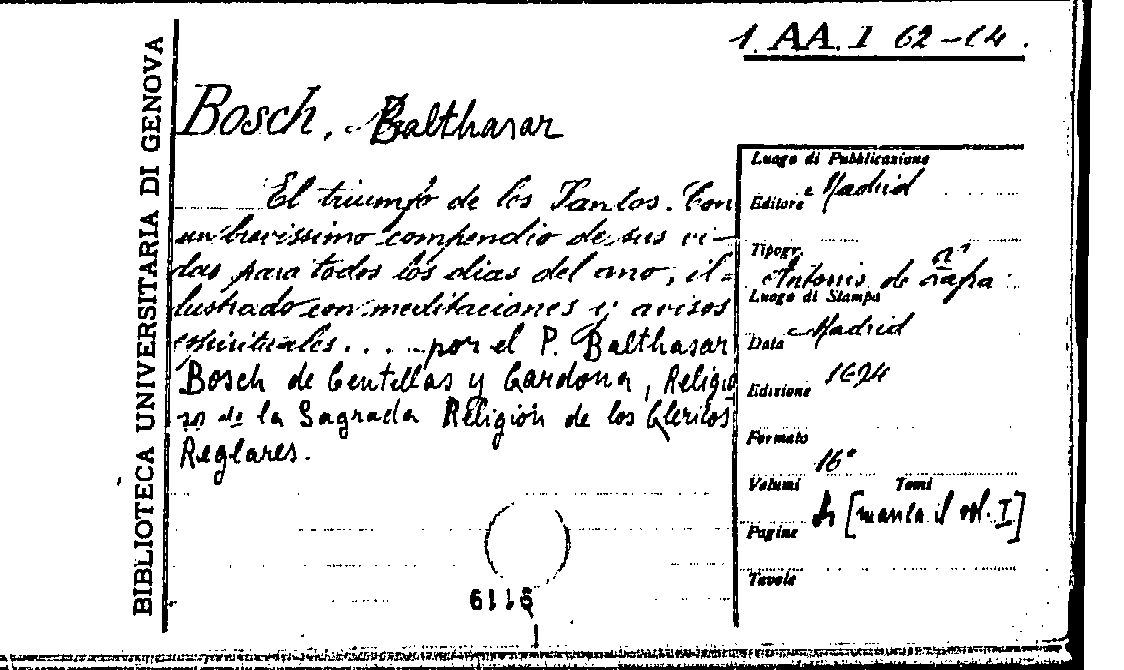 BIBLIOTECA UNIVERSITARIA DI GENOVA
1. AA. I 62-64.
Bosch, Balthasar
El triumfo de los Santos. Con
un brevissimo compendio de sus vi-
das para todos los dias del ano, il-
lustrado con meditaciones y avisos
espirituales.... por el P. Balthasar
Bosch de Centillas y Cardona, Religio
so de la Sagrada Religión de los Clericos
Reglares.
Luogo di Pubblicazione
Madrid
Editore
Tipogr.
Antonio de
Luogo di Stampa
Madrid
Data
1694
Edizione
Formato
16°
Volumi Tomi
[manca il vol. I]
Pagine
Tavole
6116